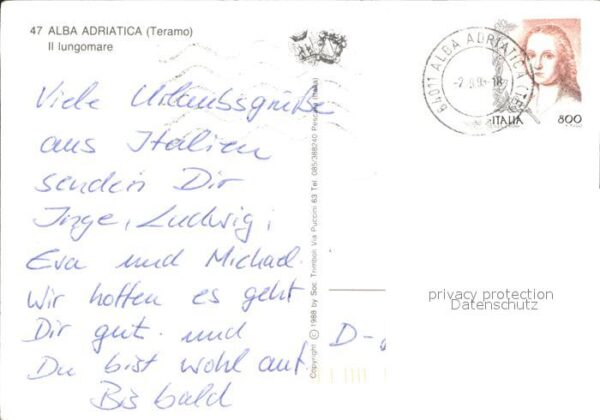 47 ALBA ADRIATICA (Teramo)
Il lungomare
Viele Urlaubsgrüße
aus Italien
senden Dir
Inge, Ludwig,
Eva und Michael.
Wir hoffen es geht
Dir gut und
Du bist wohl auf.
Bis bald
D-
Copyright © 1988 by Soc. Trimboli Via Puccini 63 Tel. 085/388240 Pescara (Italia)
64011 ALBA ADRIATICA (TE)
ITALIA
800
privacy protection
Datenschutz